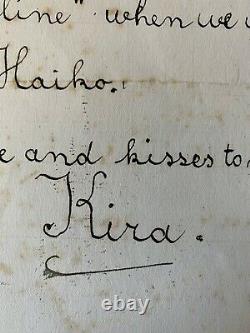 line" when we
Haiko.
and kisses to
Kira.
ebay